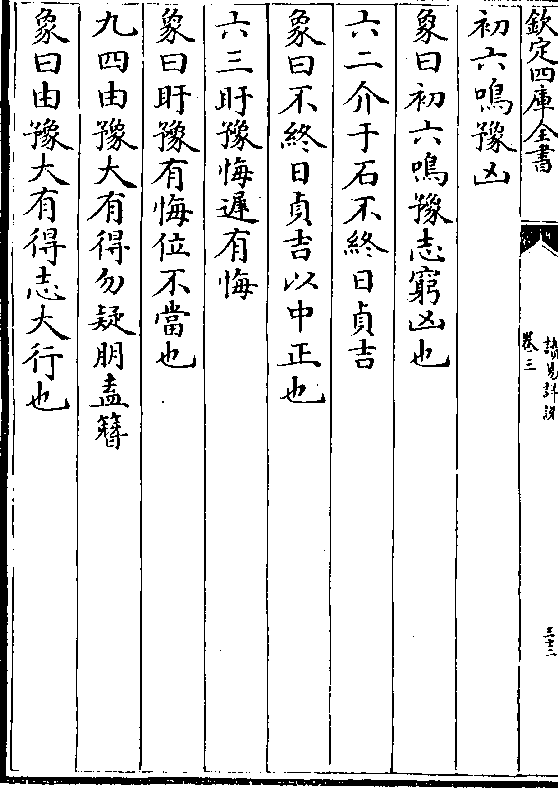 欽定四庫全書
讀易詳說
卷三
三十二
初六鳴豫凶
象曰初六鳴豫志窮凶也
六二介于石不終日貞吉
象曰不終日貞吉以中正也
六三盱豫悔遲有悔
象曰盱豫有悔位不當也
九四由豫大有得勿疑朋盍簪
象曰由豫大有得志大行也